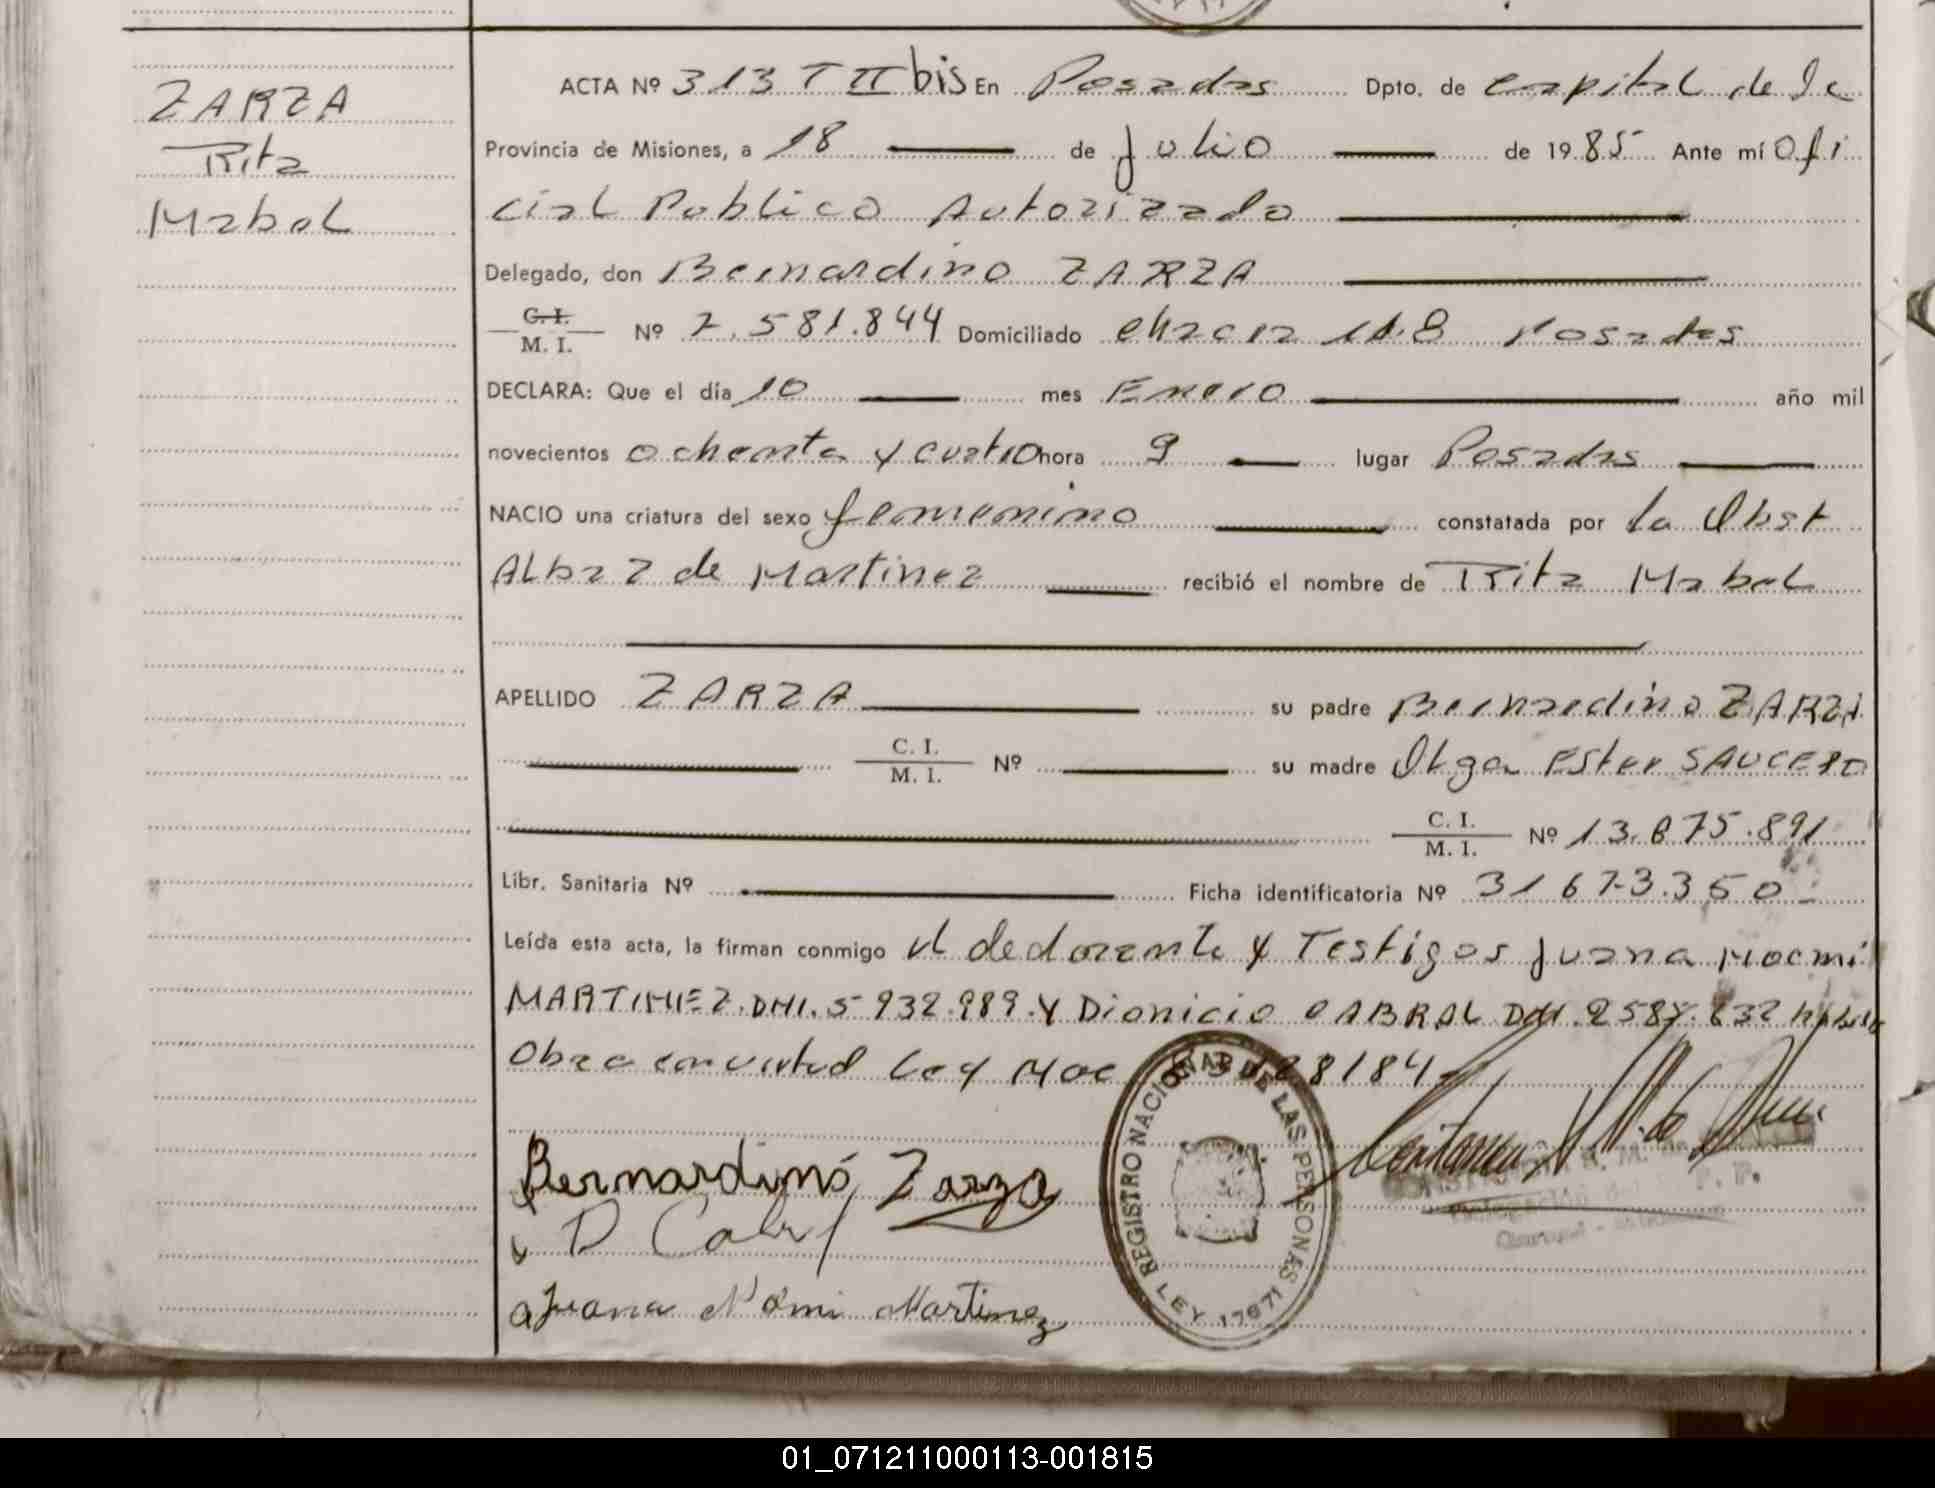 ZARZA
Rita
Mabel
ACTA Nº 313 T II bis En Posadas Dpto. de capital de la
Provincia de Misiones, a 18 de Julio de 1985 Ante mí Ofi
cial Publico Autorizado
Delegado, don Bernardino ZARZA
C.I. M. I. Nº 7.581.844 Domiciliado chacra 148 Posadas
DECLARA: Que el día 10 mes Enero año mil
novecientos ochenta y cuatro hora 9 lugar Posadas
NACIO una criatura del sexo femenino constatada por la Obst
Alba Z de Martinez recibió el nombre de Rita Mabel
APELLIDO ZARZA su padre Bernardino ZARZA
C. I. M. I. Nº su madre Olga Ester SAUCEDO
C. I. M. I. Nº 13.875.891
Libr. Sanitaria Nº Ficha identificatoria Nº 31 673.350
Leída esta acta, la firman conmigo el declarante y Testigos Juana Noemi
MARTINEZ. DNI. 5 932.989. Y Dionicio CABRAL DNI. 832
Obra en virtud Ley Nac 28184
Bernardino Zarza
D Cabral
Juana Nomi Martinez
REGISTRO NACIONAL DE LAS PERSONAS
LEY 17671
01_071211000113-001815